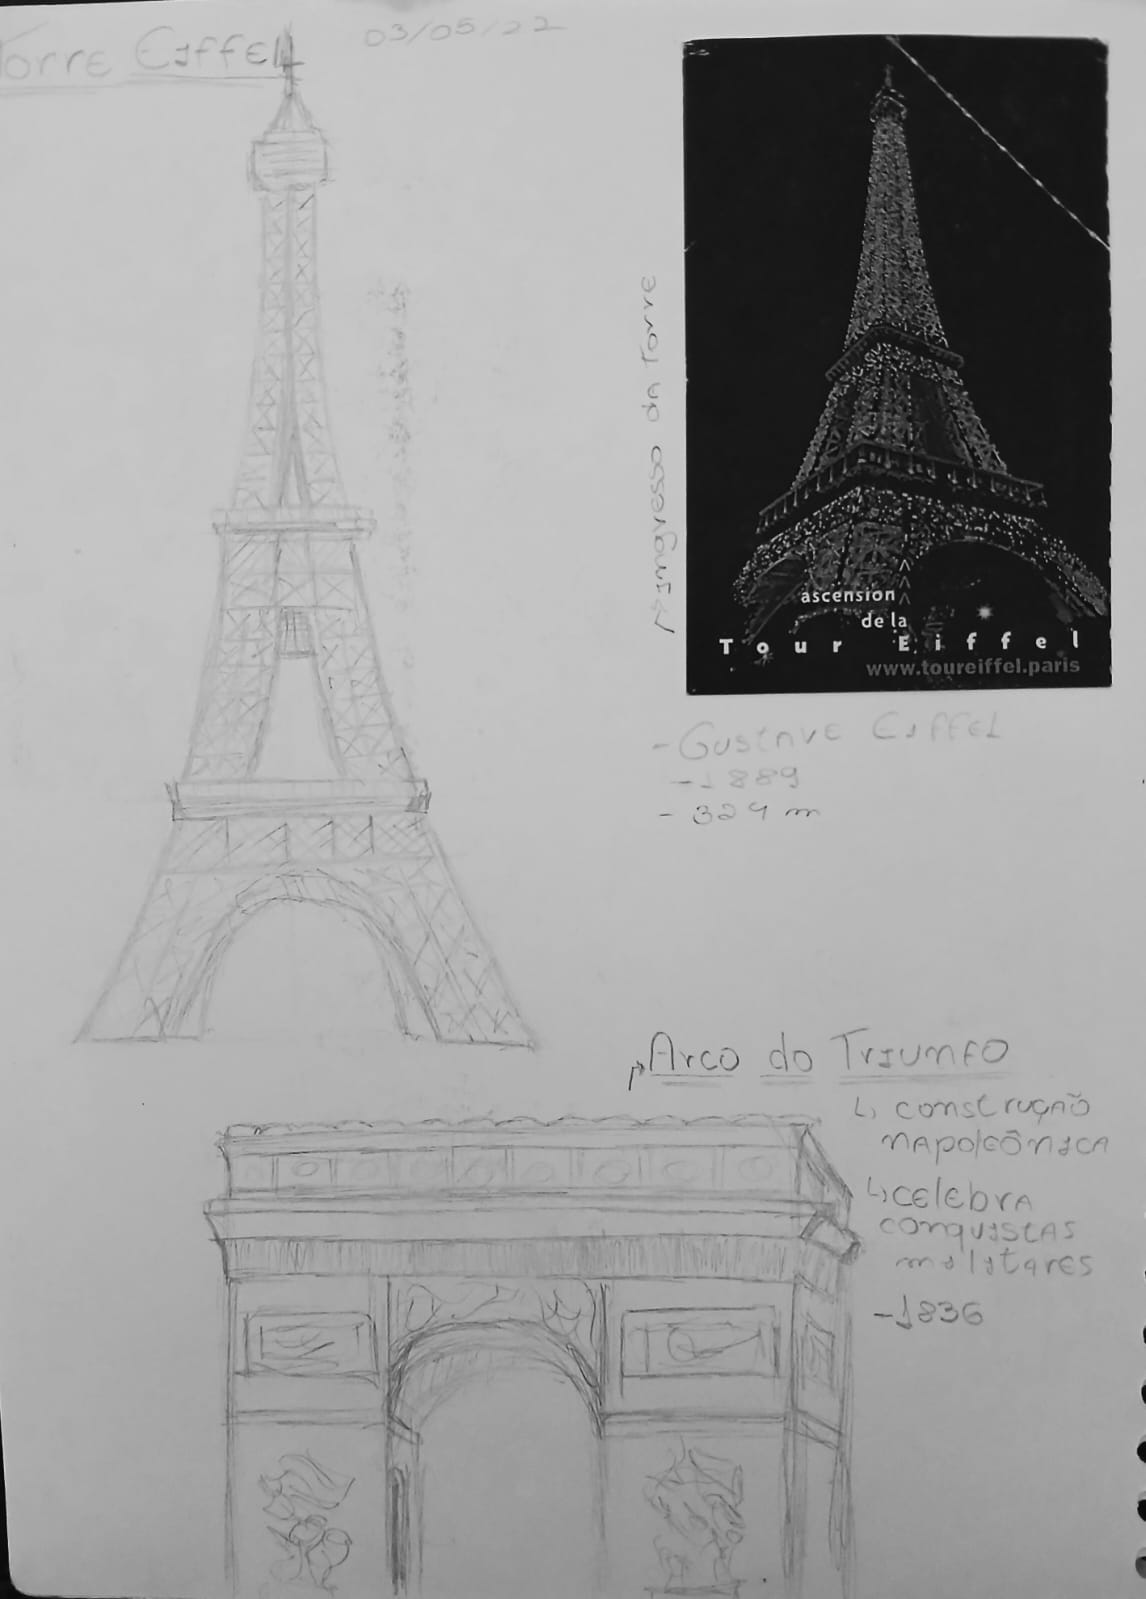 Torre Eiffel
03/05/22
Ingresso da Torre
ascension
de la
Tour Eiffel
www.toureiffel.paris
- Gustave Eiffel
- 1889
- 324 m
Arco do Triunfo
construção
napoleônica
celebra
conquistas
militares
- 1836